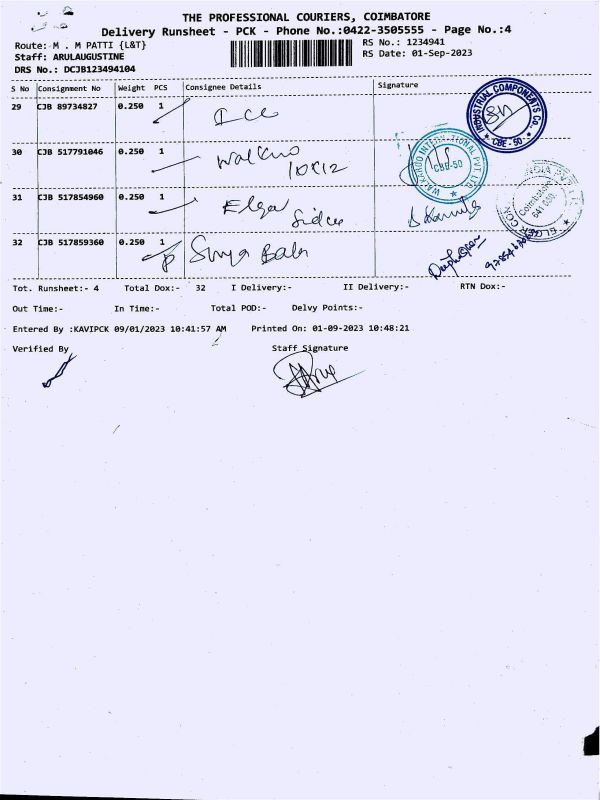 THE PROFESSIONAL COURIERS, COIMBATORE
Delivery Runsheet - PCK - Phone No.:0422-3505555 - Page No.:4
Route: M . M PATTI {L&T}
RS No.: 1234941
Staff: ARULAUGUSTINE
RS Date: 01-Sep-2023
DRS No.: DCJB123494104
S No Consignment No Weight PCS Consignee Details Signature
29 CJB 89734827 0.250 1 ICC
INDUSTRIAL COMPONENTS Co. ★ CBE - 50 ★
30 CJB 517791046 0.250 1
10x12
WALKAROO INTERNATIONAL PVT LTD. ★ CBE-50
31 CJB 517854960 0.250 1 Elgi
Coimbatore 641 050.
32 CJB 517859360 0.250 1 Surya Bala
Tot. Runsheet:- 4 Total Dox:- 32 I Delivery:- II Delivery:- RTN Dox:-
Out Time:- In Time:- Total POD:- Delvy Points:-
Entered By :KAVIPCK 09/01/2023 10:41:57 AM Printed On: 01-09-2023 10:48:21
Verified By Staff Signature